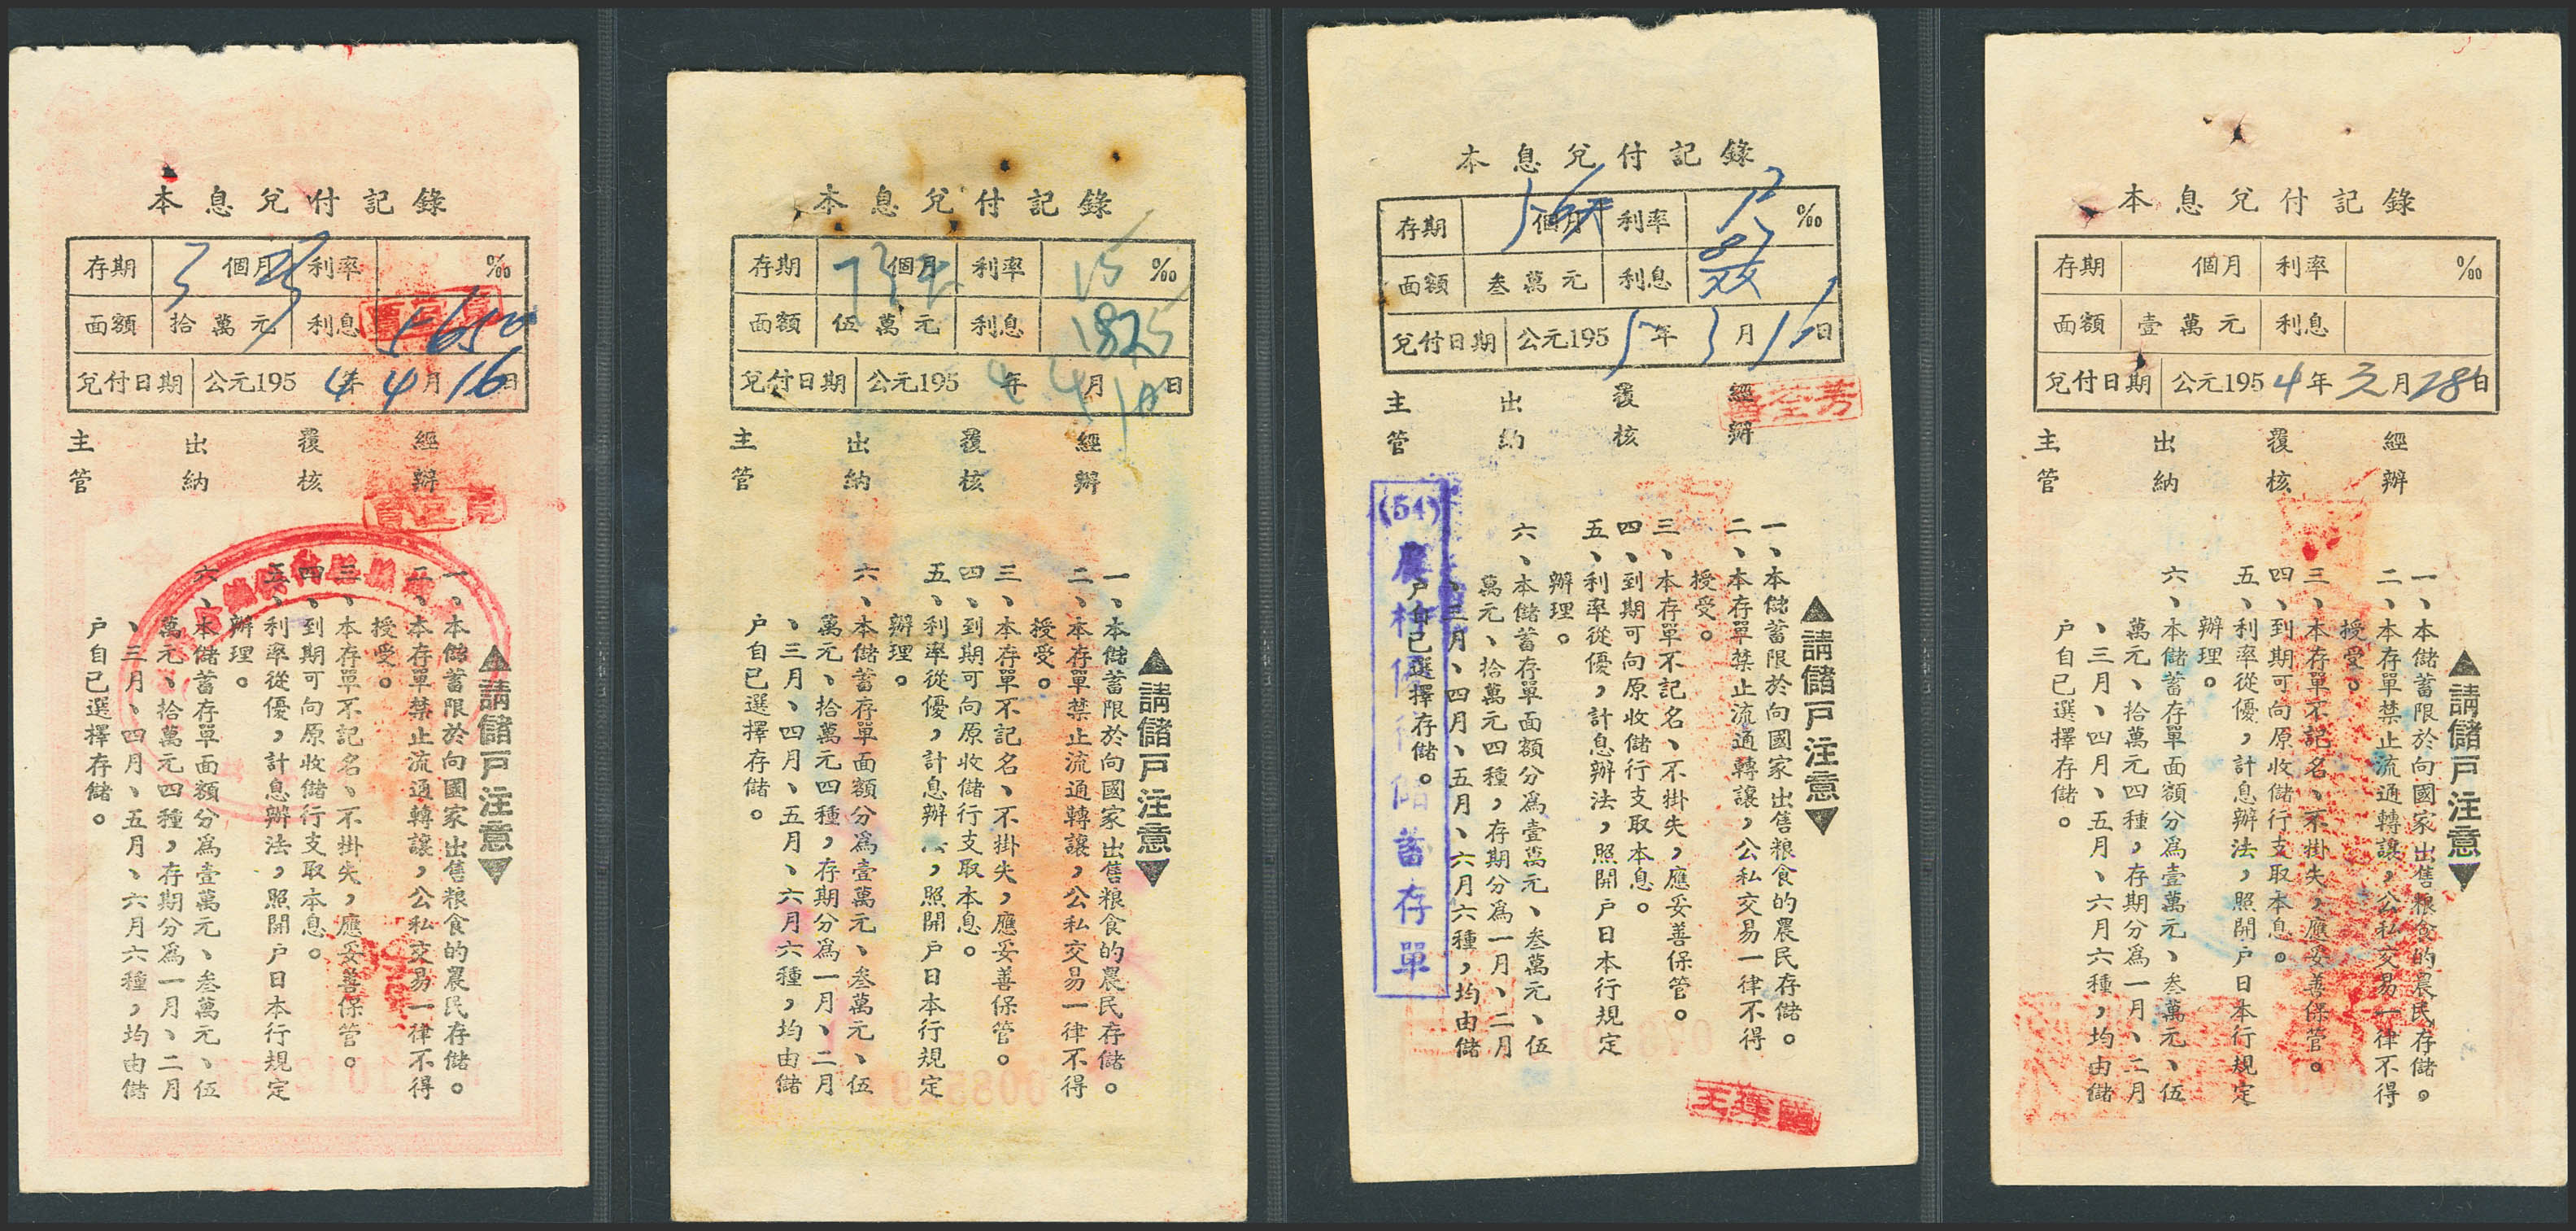 本息兌付記錄
存期 3個月 利率 ‰
面額 拾萬元 利息 5650
兌付日期 公元1954年4月16日
主管 出納 覆核 經辦
▲請儲戶注意▼
一、本儲蓄限於向國家出售粮食的農民存儲。
二、本存單禁止流通轉讓,公私交易一律不得
授受。
三、本存單不記名、不掛失,應妥善保管。
四、到期可向原收儲行支取本息。
五、利率從優,計息辦法,照開戶日本行規定
辦理。
六、本儲蓄存單面額分爲壹萬元、叁萬元、伍
萬元、拾萬元四種,存期分爲一月、二月
、三月、四月、五月、六月六種,均由儲
户自已選擇存儲。
本息兌付記錄
存期 個月 利率 15‰
面額 伍萬元 利息 1825
兌付日期 公元1954年4月10日
主管 出納 覆核 經辦
▲請儲戶注意▼
一、本儲蓄限於向國家出售粮食的農民存儲。
二、本存單禁止流通轉讓,公私交易一律不得
授受。
三、本存單不記名、不掛失,應妥善保管。
四、到期可向原收儲行支取本息。
五、利率從優,計息辦,照開戶日本行規定
辦理。
六、本儲蓄存單面額分爲壹萬元、叁萬元、伍
萬元、拾萬元四種,存期分爲一月、二月
、三月、四月、五月、六月六種,均由儲
户自已選擇存儲。
本息兌付記錄
存期 個月 利率 ‰
面額 叁萬元 利息
兌付日期 公元1955年3月16日
主管 出納 覆核 經辦
▲請儲戶注意▼
一、本儲蓄限於向國家出售粮食的農民存儲。
二、本存單禁止流通轉讓,公私交易一律不得
授受。
三、本存單不記名、不掛失,應妥善保管。
四、到期可向原收儲行支取本息。
五、利率從優,計息辦法,照開戶日本行規定
辦理。
六、本儲蓄存單面額分爲壹萬元、叁萬元、伍
萬元、拾萬元四種,存期分爲一月、二月
、三月、四月、五月、六月六種,均由儲
户自已選擇存儲。
(54)農村優待儲蓄存單
本息兌付記錄
存期 個月 利率 ‰
面額 壹萬元 利息
兌付日期 公元1954年3月28日
主管 出納 覆核 經辦
▲請儲戶注意▼
一、本儲蓄限於向國家出售粮食的農民存儲。
二、本存單禁止流通轉讓,公私交易一律不得
授受。
三、本存單不記名、不掛失,應妥善保管。
四、到期可向原收儲行支取本息。
五、利率從優,計息辦法,照開戶日本行規定
辦理。
六、本儲蓄存單面額分爲壹萬元、叁萬元、伍
萬元、拾萬元四種,存期分爲一月、二月
、三月、四月、五月、六月六種,均由儲
户自已選擇存儲。